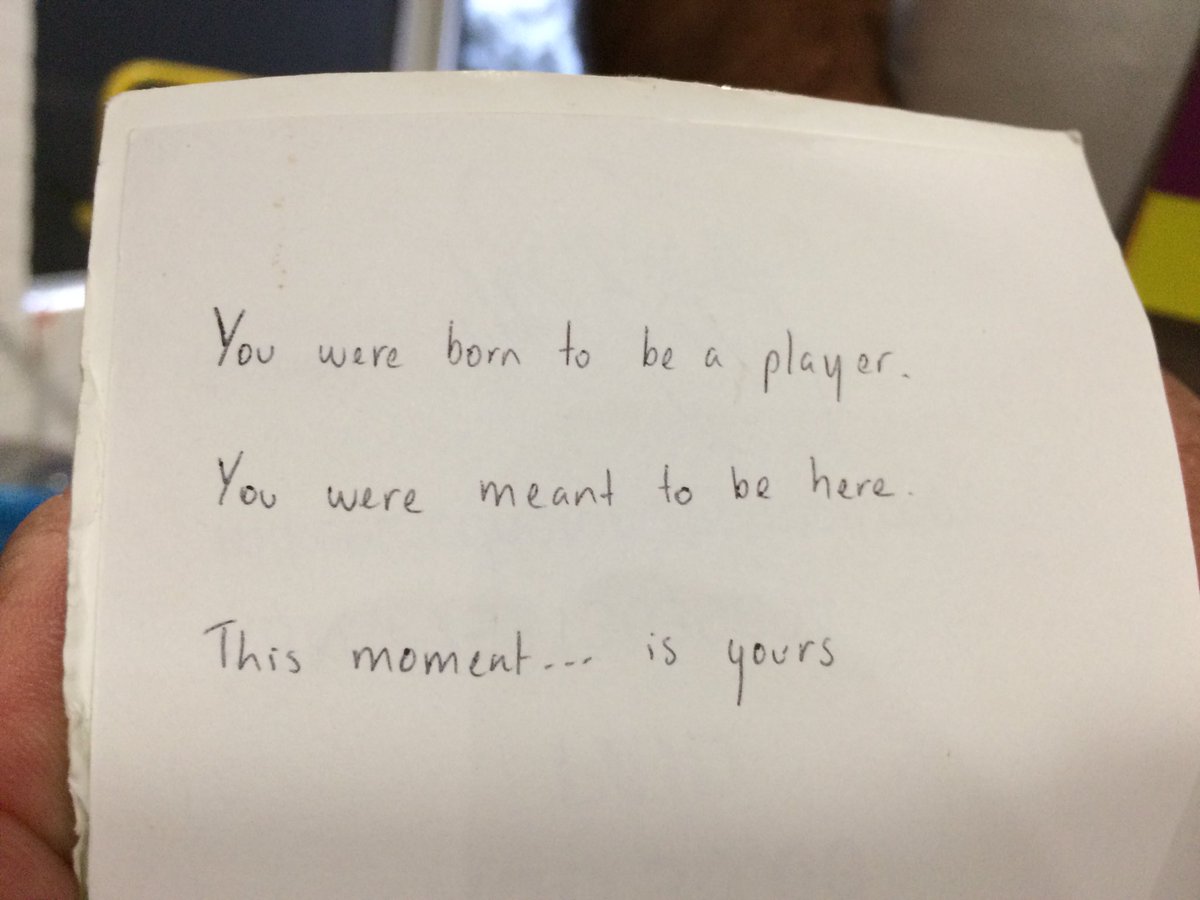 You were born to be a player.
You were meant to be here.
This moment... is yours